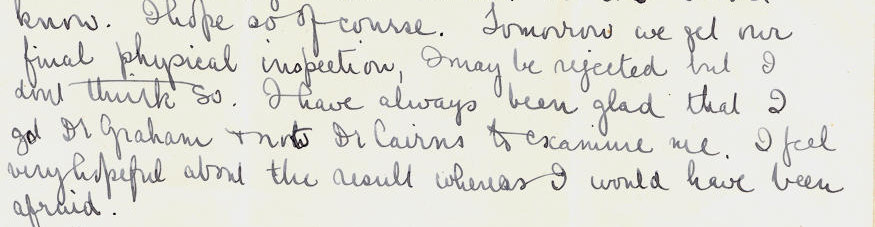 know. I hope so of course. Tomorrow we get our
final physical inspection, I may be rejected but I
dont think so. I have always been glad that I
got Dr Graham + not Dr Cairns to examine me. I feel
very hopeful about the result whereas I would have been
afraid.